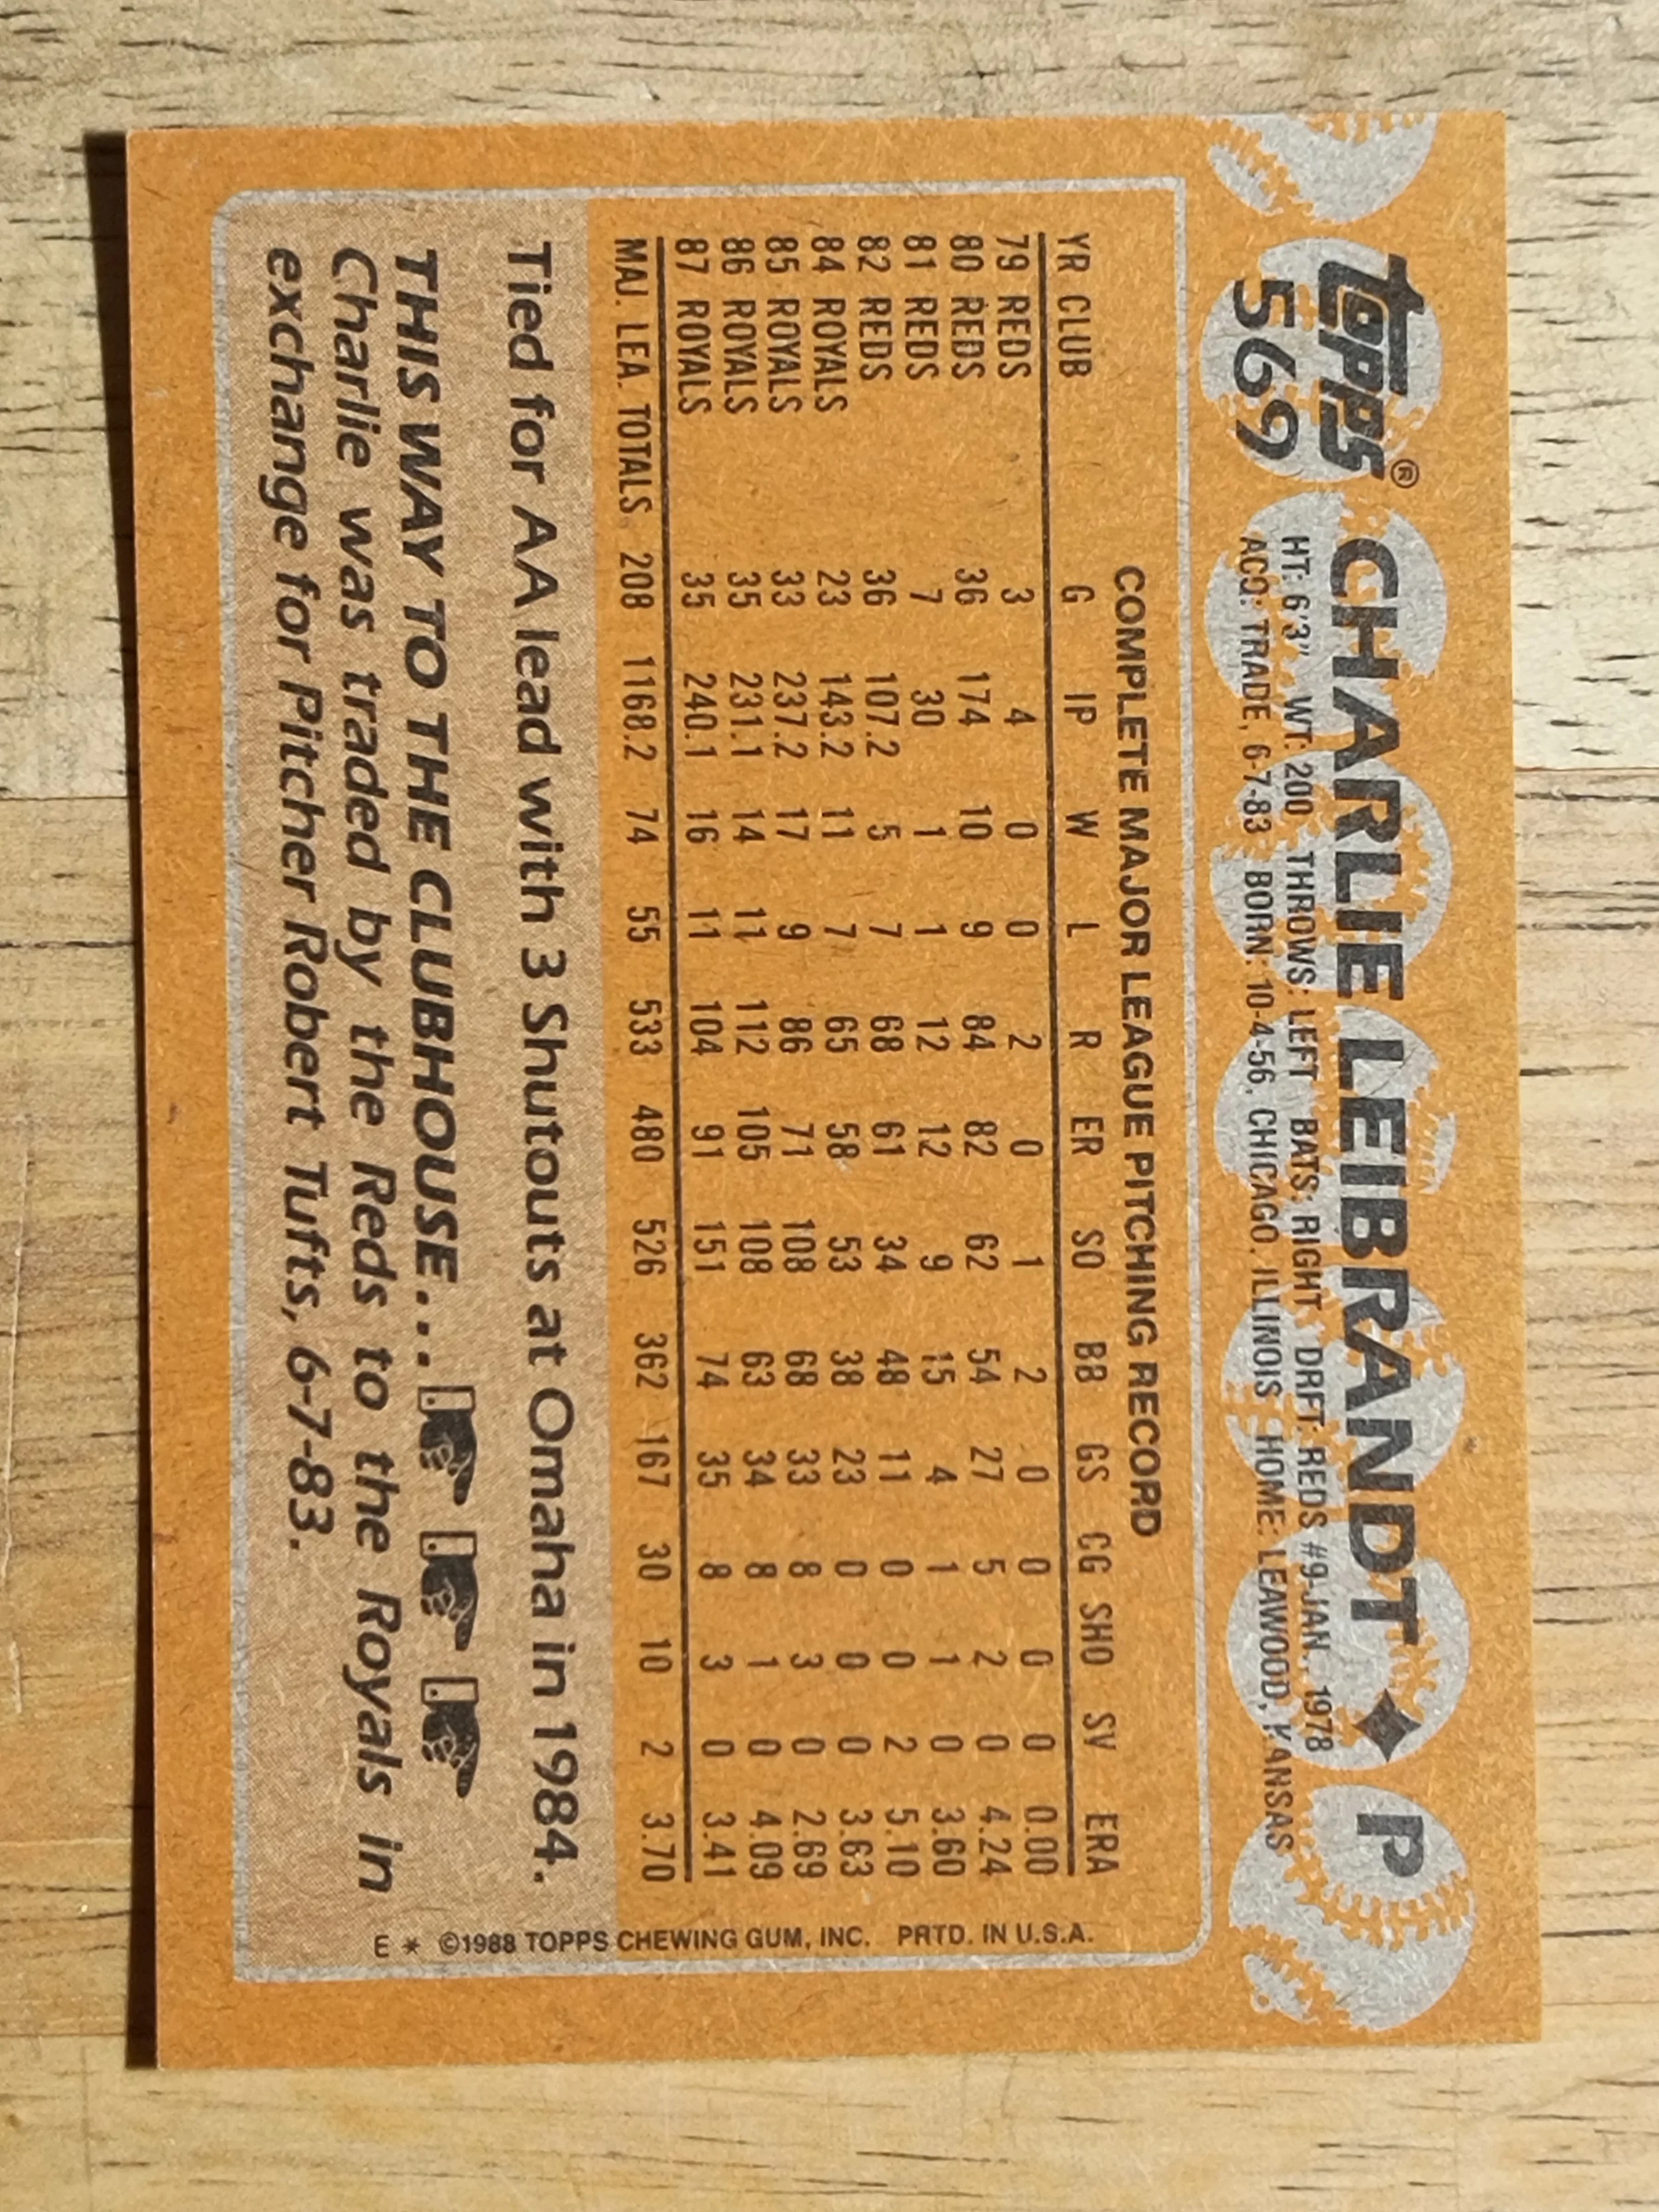 topps® CHARLIE LEIBRANDT ♦ P
569 HT: 6'3" WT: 200 THROWS: LEFT BATS: RIGHT DRFT: REDS #9-JAN., 1978
ACQ: TRADE, 6-7-83 BORN: 10-4-56, CHICAGO, ILLINOIS HOME: LEAWOOD, KANSAS
COMPLETE MAJOR LEAGUE PITCHING RECORD
YR CLUB G IP W L R ER SO BB GS CG SHO SV ERA
79 REDS 3 4 0 0 2 0 1 2 0 0 0 0 0.00
80 REDS 36 174 10 9 84 82 62 54 27 5 2 0 4.24
81 REDS 7 30 1 1 12 12 9 15 4 1 1 0 3.60
82 REDS 36 107.2 5 7 68 61 34 48 11 0 0 2 5.10
84 ROYALS 23 143.2 11 7 65 58 53 38 23 0 0 0 3.63
85 ROYALS 33 237.2 17 9 86 71 108 68 33 8 3 0 2.69
86 ROYALS 35 231.1 14 11 112 105 108 63 34 8 1 0 4.09
87 ROYALS 35 240.1 16 11 104 91 151 74 35 8 3 0 3.41
MAJ. LEA. TOTALS 208 1168.2 74 55 533 480 526 362 167 30 10 2 3.70
Tied for AA lead with 3 Shutouts at Omaha in 1984.
THIS WAY TO THE CLUBHOUSE...
Charlie was traded by the Reds to the Royals in
exchange for Pitcher Robert Tufts, 6-7-83.
E * ©1988 TOPPS CHEWING GUM, INC. PRTD. IN U.S.A.